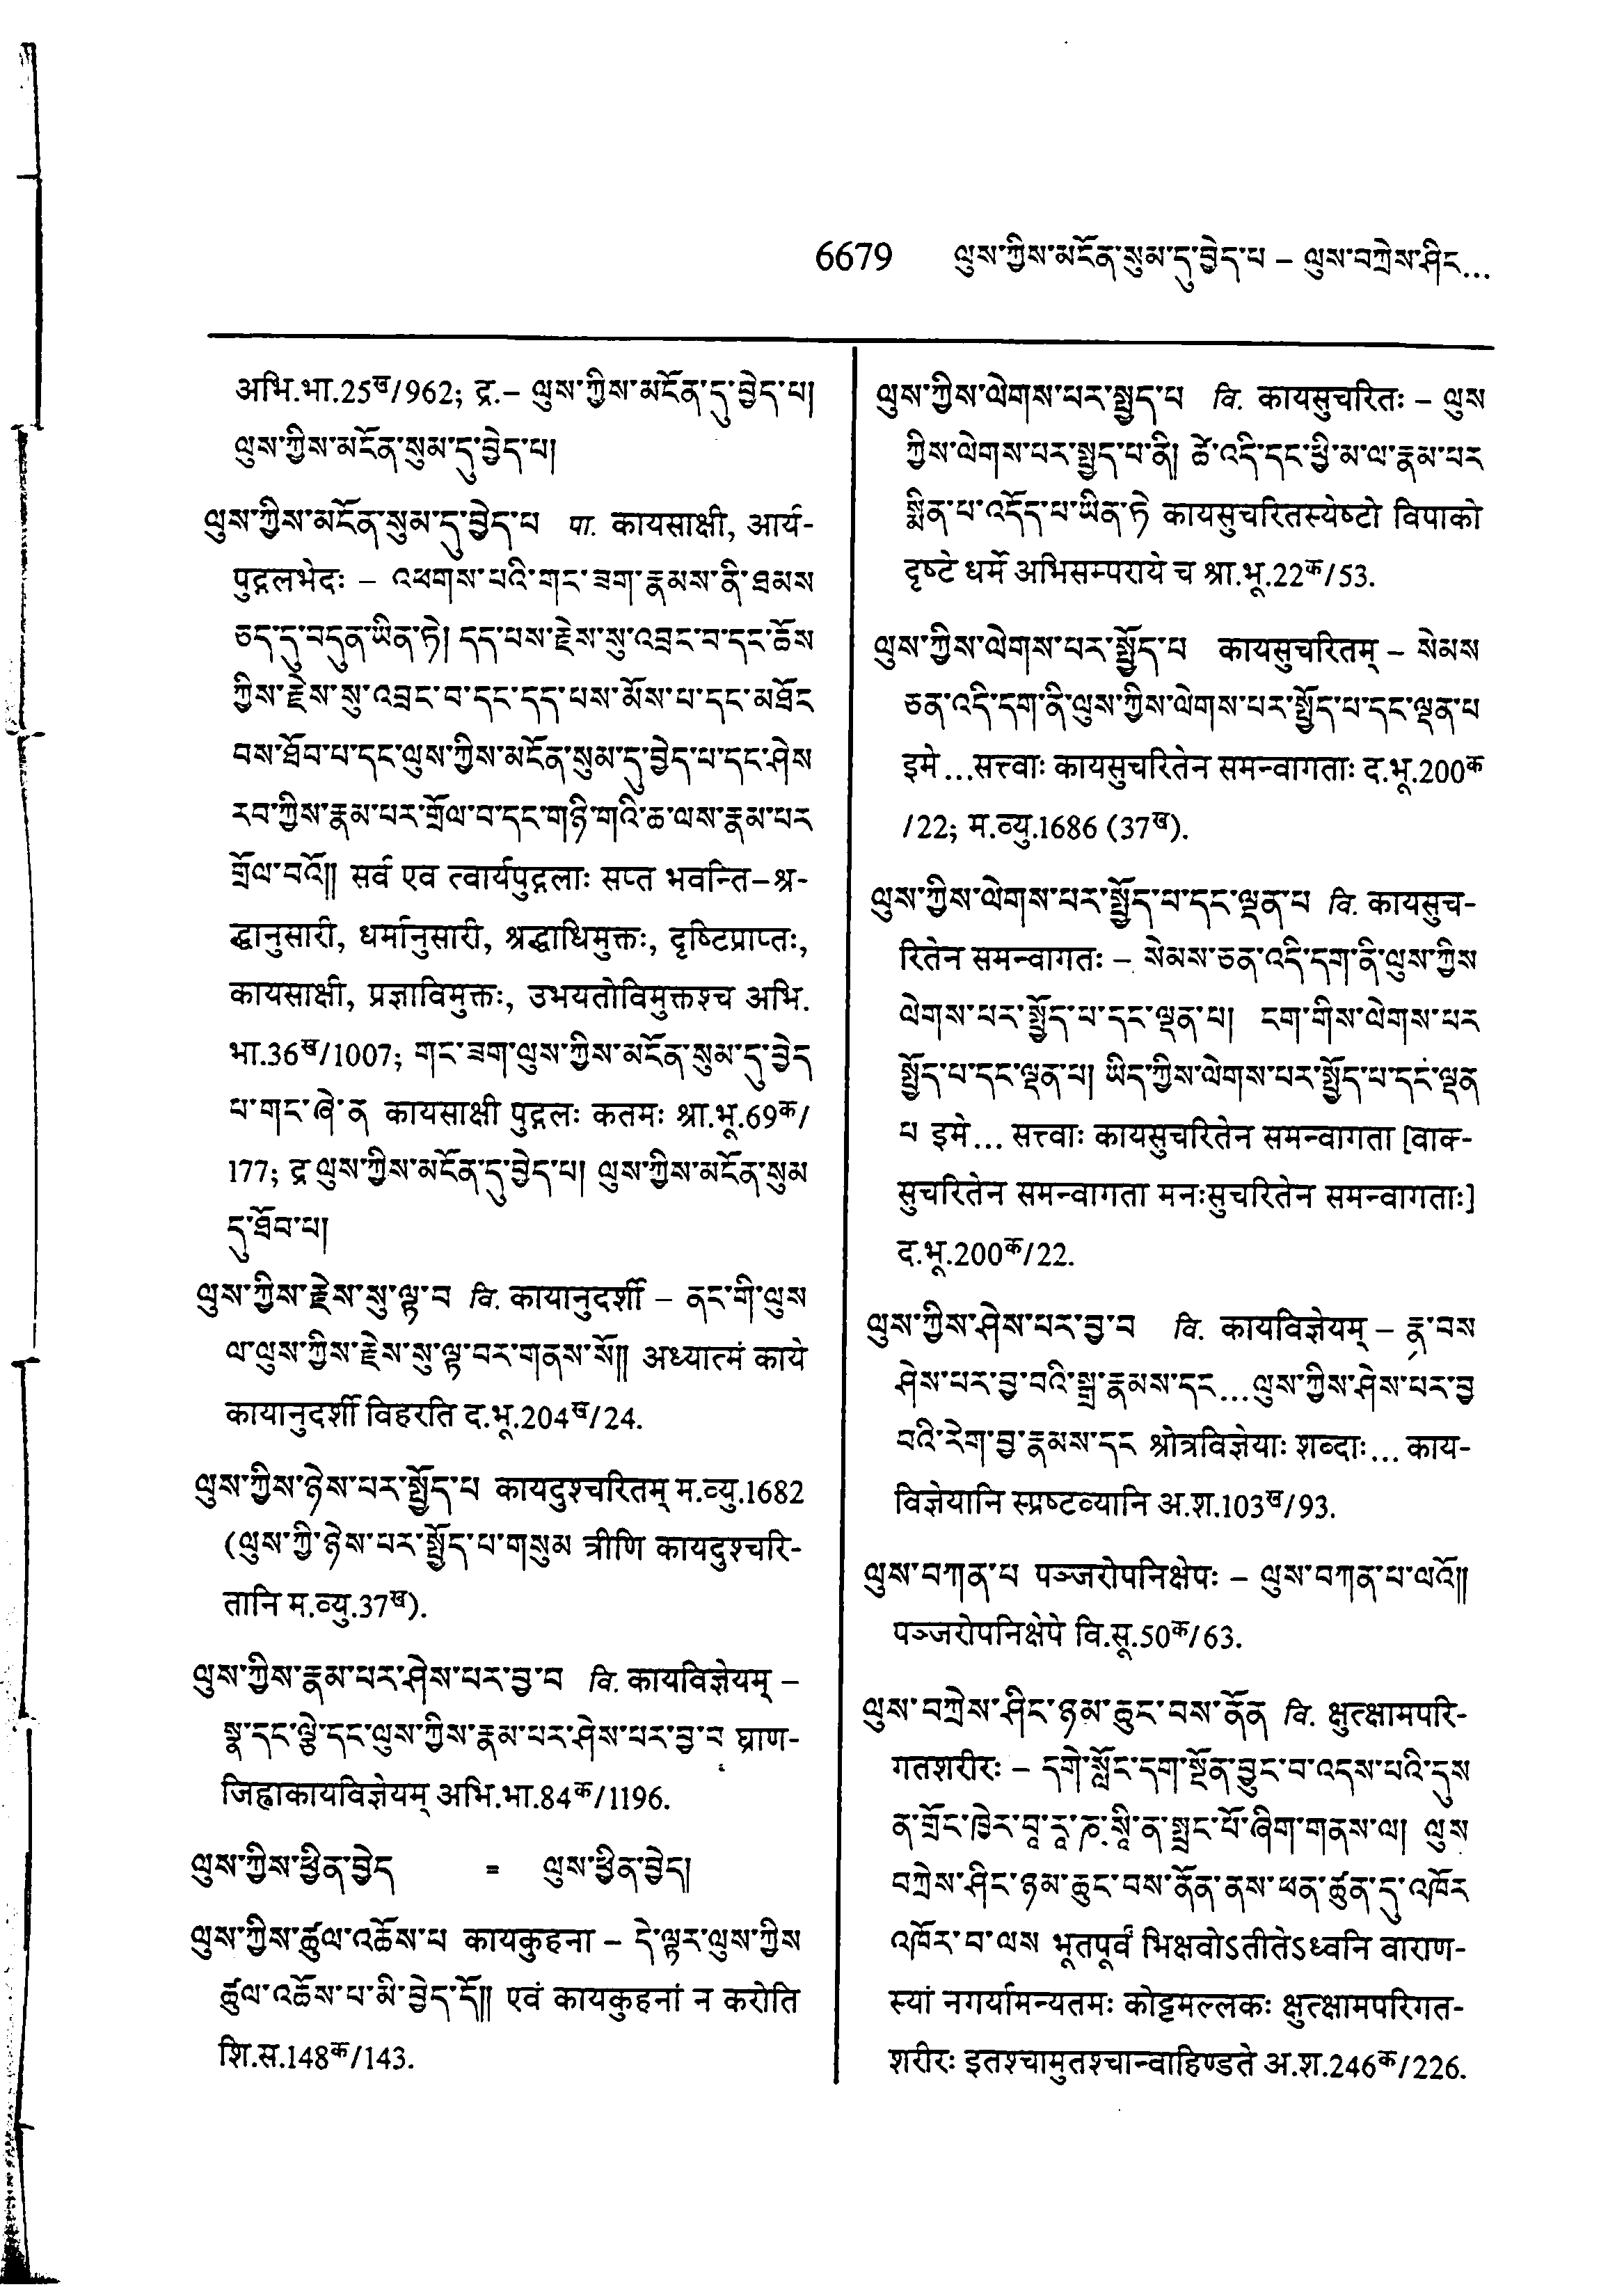 6679 ལུས་ཀྱིས་མངོན་སུམ་དུ་བྱེད་པ – ལུས་བཀྲེས་ཤིང...
अभि.भा.25ख/962; द्र.– ལུས་ཀྱིས་མངོན་དུ་བྱེད་པ།
ལུས་ཀྱིས་མངོན་སུམ་དུ་བྱེད་པ།
ལུས་ཀྱིས་མངོན་སུམ་དུ་བྱེད་པ पा. कायसाक्षी, आर्य-
पुद्गलभेदः – འཕགས་པའི་གང་ཟག་རྣམས་ནི་ཐམས
ཅད་དུ་བདུན་ཡིན་ཏེ། དད་པས་རྗེས་སུ་འབྲང་བ་དང་ཆོས
ཀྱིས་རྗེས་སུ་འབྲང་བ་དང་དད་པས་མོས་པ་དང་མཐོང
བས་ཐོབ་པ་དང་ལུས་ཀྱིས་མངོན་སུམ་དུ་བྱེད་པ་དང་ཤེས
རབ་ཀྱིས་རྣམ་པར་གྲོལ་བ་དང་གཉི་གའི་ཆ་ལས་རྣམ་པར
གྲོལ་བའོ།། सर्व एव त्वार्यपुद्गलाः सप्त भवन्ति–श्र-
द्धानुसारी, धर्मानुसारी, श्रद्धाधिमुक्तः, दृष्टिप्राप्तः,
कायसाक्षी, प्रज्ञाविमुक्तः, उभयतोविमुक्तश्च अभि.
भा.36ख/1007; གང་ཟག་ལུས་ཀྱིས་མངོན་སུམ་དུ་བྱེད
པ་གང་ཞེ་ན कायसाक्षी पुद्गलः कतमः श्रा.भू.69क/
177; द्र ལུས་ཀྱིས་མངོན་དུ་བྱེད་པ། ལུས་ཀྱིས་མངོན་སུམ
དུ་ཐོབ་པ།
ལུས་ཀྱིས་རྗེས་སུ་ལྟ་བ वि. कायानुदर्शी – ནང་གི་ལུས
ལ་ལུས་ཀྱིས་རྗེས་སུ་ལྟ་བར་གནས་སོ།། अध्यात्मं काये
कायानुदर्शी विहरति द.भू.204ख/24.
ལུས་ཀྱིས་ཉེས་པར་སྤྱོད་པ कायदुश्चरितम् म.व्यु.1682
(ལུས་ཀྱི་ཉེས་པར་སྤྱོད་པ་གསུམ त्रीणि कायदुश्चरि-
तानि म.व्यु.37ख).
ལུས་ཀྱིས་རྣམ་པར་ཤེས་པར་བྱ་བ वि. कायविज्ञेयम् –
སྣ་དང་ལྕེ་དང་ལུས་ཀྱིས་རྣམ་པར་ཤེས་པར་བྱ་བ घ्राण-
जिह्वाकायविज्ञेयम् अभि.भा.84क/1196.
ལུས་ཀྱིས་ཕྱིན་བྱེད = ལུས་ཕྱིན་བྱེད།
ལུས་ཀྱིས་ཚུལ་འཆོས་པ कायकुहना – དེ་ལྟར་ལུས་ཀྱིས
ཚུལ་འཆོས་པ་མི་བྱེད་དོ།། एवं कायकुहनां न करोति
शि.स.148क/143.
ལུས་ཀྱིས་ལེགས་པར་སྤྱད་པ वि. कायसुचरितः – ལུས
ཀྱིས་ལེགས་པར་སྤྱད་པ་ནི། ཚེ་འདི་དང་ཕྱི་མ་ལ་རྣམ་པར
སྨིན་པ་འདོད་པ་ཡིན་ཏེ कायसुचरितस्येष्टो विपाको
दृष्टे धर्मे अभिसम्पराये च श्रा.भू.22क/53.
ལུས་ཀྱིས་ལེགས་པར་སྤྱོད་པ कायसुचरितम् – སེམས
ཅན་འདི་དག་ནི་ལུས་ཀྱིས་ལེགས་པར་སྤྱོད་པ་དང་ལྡན་པ
इमे...सत्त्वाः कायसुचरितेन समन्वागताः द.भू.200क
/22; म.व्यु.1686 (37ख).
ལུས་ཀྱིས་ལེགས་པར་སྤྱོད་པ་དང་ལྡན་པ वि. कायसुच-
रितेन समन्वागतः – སེམས་ཅན་འདི་དག་ནི་ལུས་ཀྱིས
ལེགས་པར་སྤྱོད་པ་དང་ལྡན་པ། ངག་གིས་ལེགས་པར
སྤྱོད་པ་དང་ལྡན་པ། ཡིད་ཀྱིས་ལེགས་པར་སྤྱོད་པ་དང་ལྡན
པ इमे... सत्त्वाः कायसुचरितेन समन्वागता [वाक्-
सुचरितेन समन्वागता मनःसुचरितेन समन्वागताः]
द.भू.200क/22.
ལུས་ཀྱིས་ཤེས་པར་བྱ་བ वि. कायविज्ञेयम् – རྣ་བས
ཤེས་པར་བྱ་བའི་སྒྲ་རྣམས་དང...ལུས་ཀྱིས་ཤེས་པར་བྱ
བའི་རེག་བྱ་རྣམས་དང श्रोत्रविज्ञेयाः शब्दाः... काय-
विज्ञेयानि स्प्रष्टव्यानि अ.श.103ख/93.
ལུས་བཀན་པ पञ्जरोपनिक्षेपः – ལུས་བཀན་པ་ལའོ།།
पञ्जरोपनिक्षेपे वि.सू.50क/63.
ལུས་བཀྲེས་ཤིང་ཉམ་ཆུང་བས་ནོན वि. क्षुत्क्षामपरि-
गतशरीरः – དགེ་སློང་དག་སྔོན་བྱུང་བ་འདས་པའི་དུས
ན་གྲོང་ཁྱེར་བཱ་རཱ་ཎ་སཱི་ན་སྤྲང་པོ་ཞིག་གནས་ལ། ལུས
བཀྲེས་ཤིང་ཉམ་ཆུང་བས་ནོན་ནས་ཕན་ཚུན་དུ་འཁོར
འཁོར་བ་ལས भूतपूर्वं भिक्षवोऽतीतेऽध्वनि वाराण-
स्यां नगर्यामन्यतमः कोट्टमल्लकः क्षुत्क्षामपरिगत-
शरीरः इतश्चामुतश्चान्वाहिण्डते अ.श.246क/226.